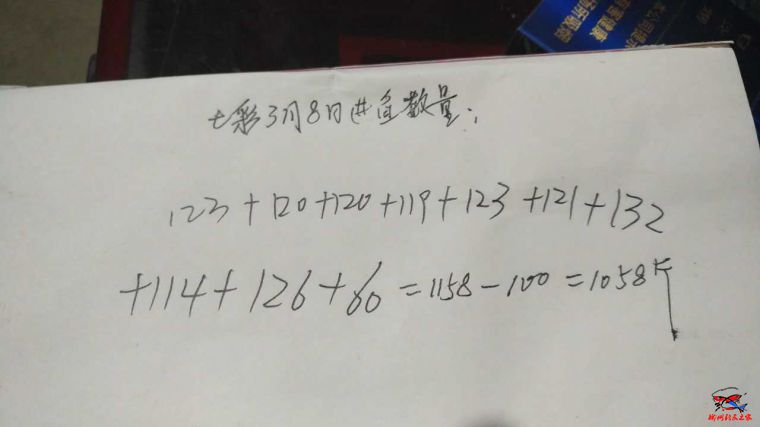 七彩3月8日进鱼数量:
123+120+120+119+123+121+132
+114+126+60=1158-100=1058斤
柳州钓友之家